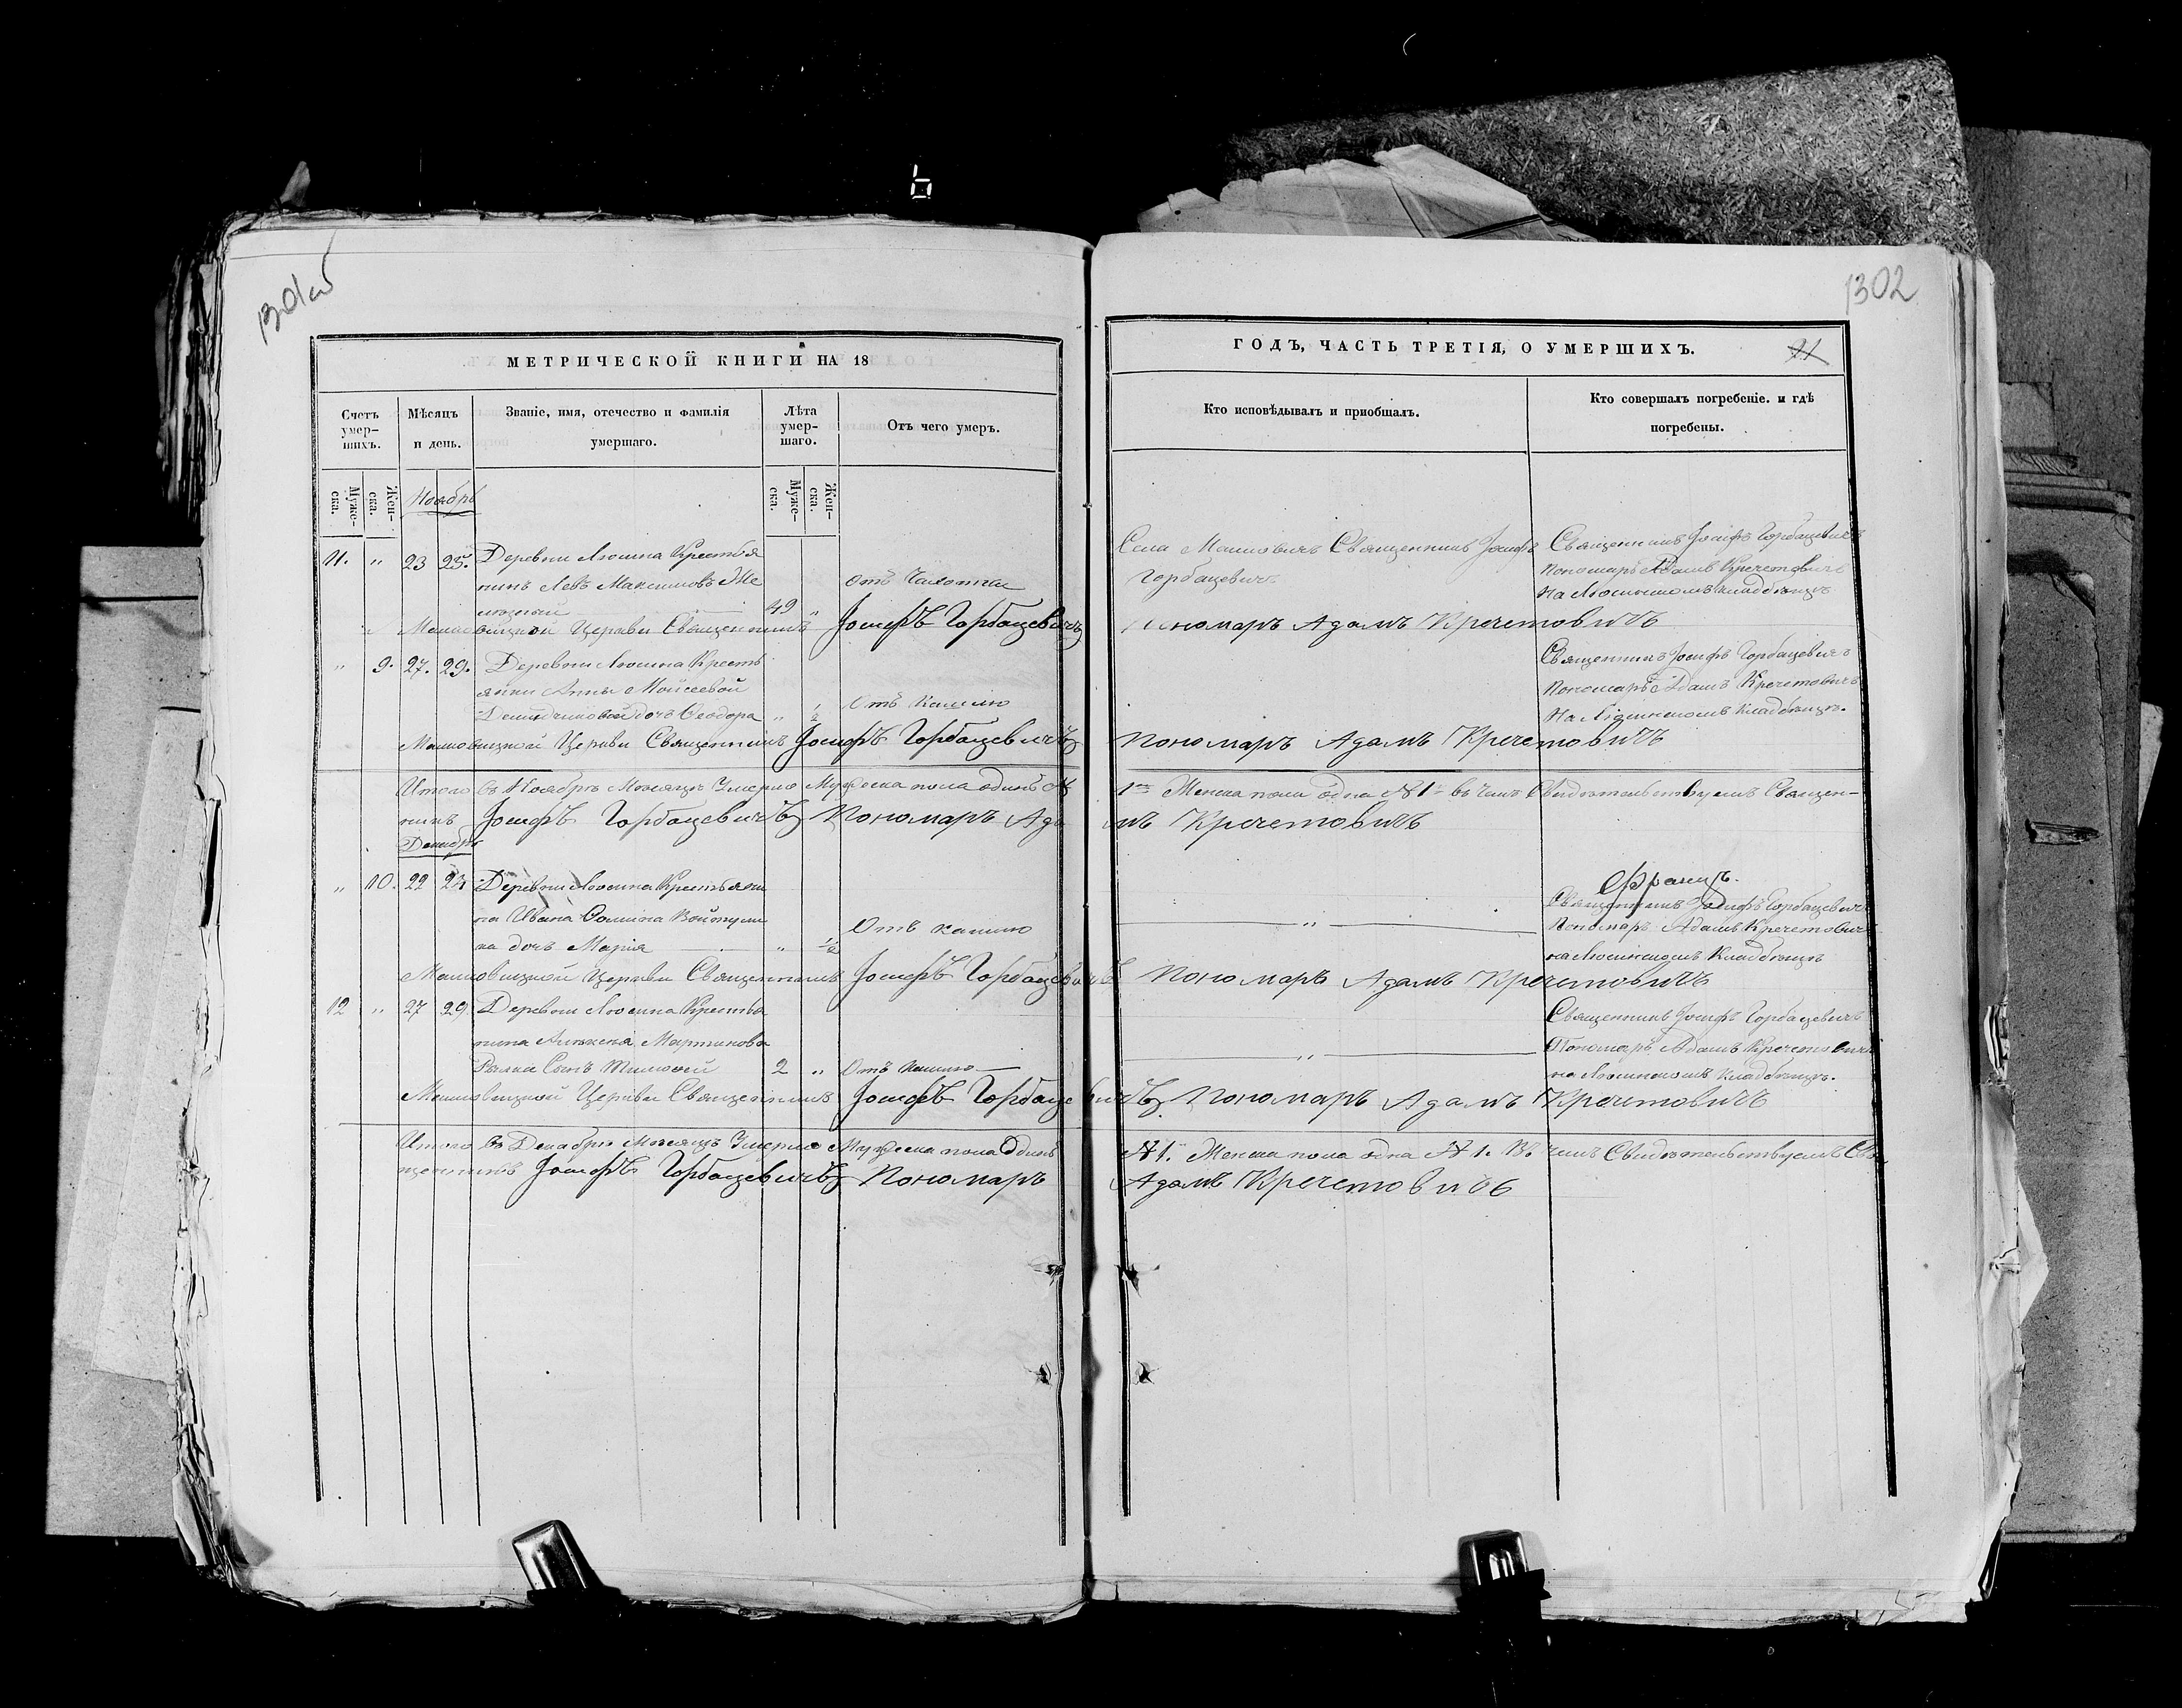 1301об
1302
МЕТРИЧЕСКОЙ КНИГИ НА 18
ГОДЪ, ЧАСТЬ ТРЕТІЯ, О УМЕРШИХЪ.
21
Счетъ умер-
шихъ.
Мѣсяцъ
и день.
Званіе, имя, отечество и фамилія
умершаго.
Лѣта
умер-
шаго.
Отъ чего умеръ.
Кто исповѣдывалъ и приобщалъ.
Кто совершалъ погребеніе. и гдѣ
погребены.
Муже-
ска.
Жен-
ска.
Муже-
ска.
Жен-
ска.
Ноябрь
11. " 23 25. Деревни Люсина Крестья
нинъ Левъ Максимовъ
49 " Отъ Чахотки
Села Священникъ Іосифъ
Горбацевичъ
Священникъ Іосифъ Горбацевичъ
Пономарь Адамъ Кречетовичъ
На Люсинскомъ кладбищѣ
Церкви Священникъ Іосифъ Горбацевичъ Пономарь Адамъ Кречетовичъ
" 9. 27. 29. Деревни Люсина Кресть
янки Анны Моисеевой
дочь Ѳеодора " 1/2 Отъ Кашлю
Священникъ Іосифъ Горбацевичъ
Пономарь Адамъ Кречетовичъ
На кладбищѣ.
Церкви Священникъ Іосифъ Горбацевичъ Пономарь Адамъ Кречетовичъ
Итого въ Ноябрѣ Мѣсяцѣ Умерло Мужеска пола одинъ №
1 Женска пола одна № 1 въ чемъ Свидѣтельствуемъ Священ-
никъ Іосифъ Горбацевичъ Пономарь Адамъ Кречетовичъ
Декабрь
" 10. 22 23 Деревни Люсина Крестьяни
на Ивана Войтуш
ка дочь Марія " 1/2 Отъ кашлю
"
Франц.
Священникъ Іосифъ Горбацевичъ
Пономарь Адамъ Кречетовичъ
на Люсинскомъ Кладбищѣ
Церкви Священникъ Іосифъ Горбацевичъ Пономарь Адамъ Кречетовичъ
12 " 27 29 Деревни Люсина Крестья
нина Мартинова
Сынъ 2 " Отъ Кашлю
"
Священникъ Іосифъ Горбацевичъ
Пономарь Адамъ Кречетовичъ
на Люсинскомъ Кладбищѣ.
Церкви Священникъ Іосифъ Горбацевичъ Пономарь Адамъ Кречетовичъ
Итого въ Декабрѣ Мѣсяцѣ Умерло Мужеска пола Одинъ
№ 1. Женска пола одна № 1. Въ чемъ Свидѣтельствуемъ Свя
щенникъ Іосифъ Горбацевичъ Пономарь
Адамъ Кречетовичъ